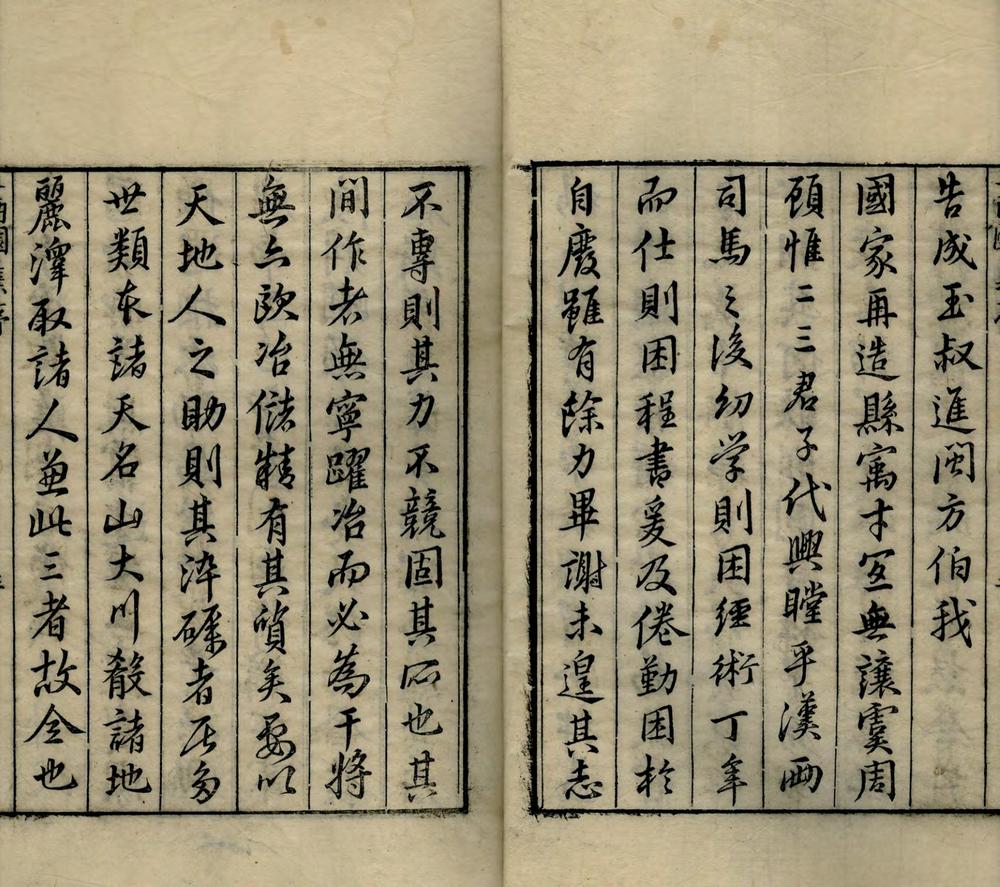 告成玉叔進閩方伯我
國家再造縣寓才宜無讓虞周
顧惟二三君子代興瞠乎漢西
司馬之後幼学則困經術丁年
而仕則困程書爰及倦勤困於
自廢雖有餘力畢謝未遑其志
不專則其力不競固其所也其
間作者無寧躍冶而必為干將
無亦歐冶儲精有其質矣要以
天地人之助則其淬礪者居多
世類本諸天名山大川殽諸地
麗澤取諸人兼此三者故令也